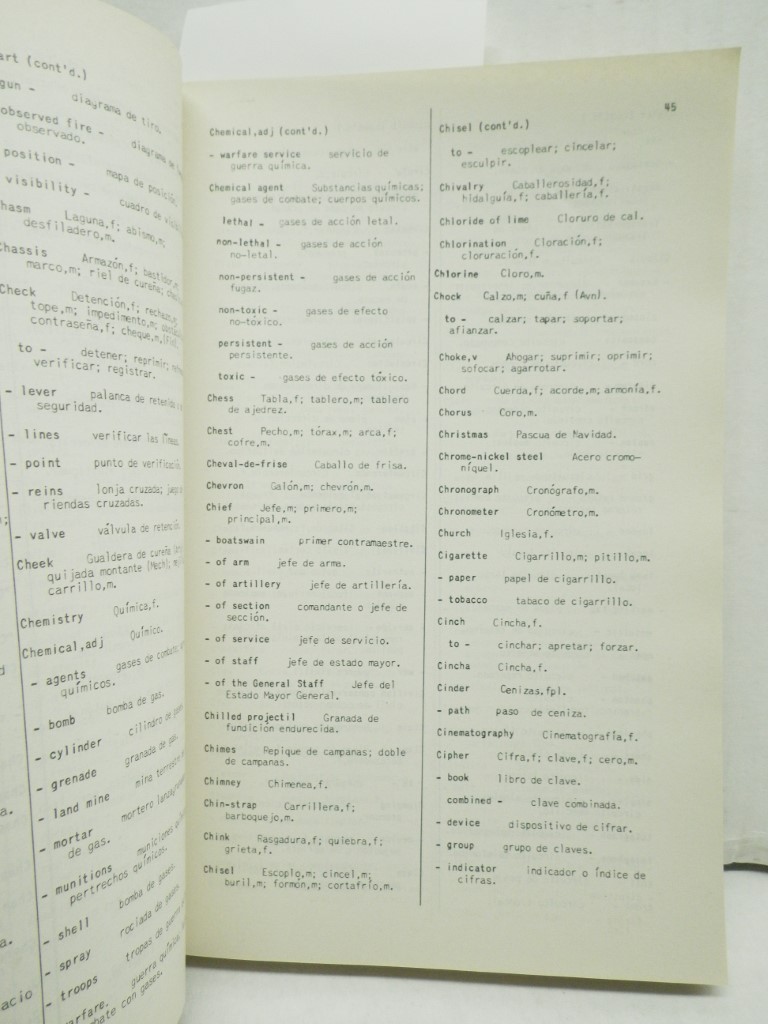 art (cont'd.)
gun - diagrama de tiro.
observed fire - diagrama de
observado.
position - mapa de posición.
visibility - cuadro de
Laguna,f; abismo,m;
desfiladero,m.
Chassis Armazón,f; bastidor,m;
marco,m; riel de cureña;
Check Detención,f; rechazo,m;
tope,m; impedimento,m;
contraseña,f; cheque,m,(Fin).
to - detener; reprimir;
verificar; registrar.
- lever palanca de
seguridad.
- lines verificar las líneas.
- point punto de verificación.
- reins lonja cruzada;
riendas cruzadas.
- valve válvula de retención.
Cheek Gualdera de cureña
quijada montante (Mech);
carrillo,m.
Chemistry Química,f.
Chemical,adj Químico.
- agents gases de combate;
químicos.
- bomb bomba de gas.
- cylinder cilindro de
- grenade granada de gas.
- land mine mina
- mortar mortero
de gas.
- munitions municiones
pertrechos químicos.
- shell bomba de gases.
- spray rociada de gases.
- troops tropas de guerra
warfare. guerra química,
con gases.
acio
Chemical,adj (cont'd.)
- warfare service servicio de
guerra química.
Chemical agent Substancias químicas;
gases de combate; cuerpos químicos.
lethal - gases de acción letal.
non-lethal - gases de acción
no-letal.
non-persistent - gases de acción
fugaz.
non-toxic - gases de efecto
no-tóxico.
persistent - gases de acción
persistente.
toxic - gases de efecto tóxico.
Chess Tabla,f; tablero,m; tablero
de ajedrez.
Chest Pecho,m; tórax,m; arca,f;
cofre,m.
Cheval-de-frise Caballo de frisa.
Chevron Galón,m; chevrón,m.
Chief Jefe,m; primero,m;
principal,m.
- boatswain primer contramaestre.
- of arm jefe de arma.
- of artillery jefe de artillería.
- of section comandante o jefe de
sección.
- of service jefe de servicio.
- of staff jefe de estado mayor.
- of the General Staff Jefe del
Estado Mayor General.
Chilled projectil Granada de
fundición endurecida.
Chimes Repique de campanas; doble
de campanas.
Chimney Chimenea,f.
Chin-strap Carrillera,f;
barboquejo,m.
Chink Rasgadura,f; quiebra,f;
grieta,f.
Chisel Escoplo,m; cincel,m;
buril,m; formón,m; cortafrío,m.
45
Chisel (cont'd.)
to - escoplear; cincelar;
esculpir.
Chivalry Caballerosidad,f;
hidalguía,f; caballería,f.
Chloride of lime Cloruro de cal.
Chlorination Cloración,f;
cloruración,f.
Chlorine Cloro,m.
Chock Calzo,m; cuña,f (Avn).
to - calzar; tapar; soportar;
afianzar.
Choke,v Ahogar; suprimir; oprimir;
sofocar; agarrotar.
Chord Cuerda,f; acorde,m; armonía,f.
Chorus Coro,m.
Christmas Pascua de Navidad.
Chrome-nickel steel Acero cromo-
níquel.
Chronograph Cronógrafo,m.
Chronometer Cronómetro,m.
Church Iglesia,f.
Cigarette Cigarrillo,m; pitillo,m.
- paper papel de cigarrillo.
- tobacco tabaco de cigarrillo.
Cinch Cincha,f.
to - cinchar; apretar; forzar.
Cincha Cincha,f.
Cinder Cenizas,fpl.
- path paso de ceniza.
Cinematography Cinematografía,f.
Cipher Cifra,f; clave,f; cero,m.
- book libro de clave.
combined - clave combinada.
- device dispositivo de cifrar.
- group grupo de claves.
- indicator indicador o índice de
cifras.